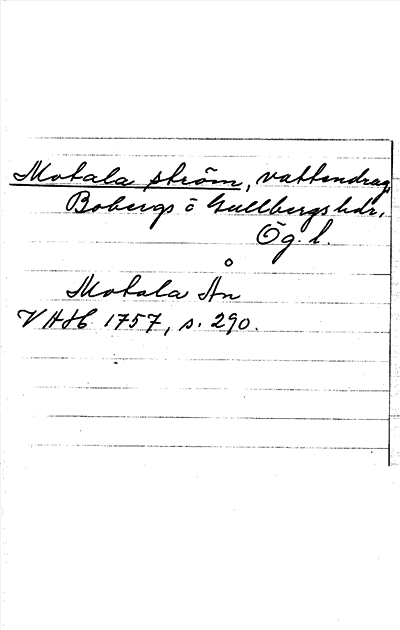 Motala ström, vattendrag,
Bobergs o Gullbergs hdr,
Ög. l.
Motala Ån
VAH 1757, s. 290.